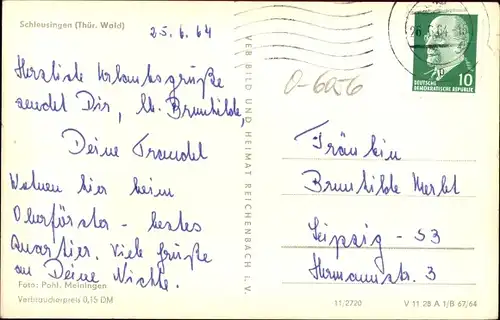 Schleusingen (Thür. Wald)
25.6.64
Herzliche Urlaubsgrüße
sendet Dir, lb. Brunhilde,
Deine Traudel
Wohnen hier beim
Oberförster - bestes
Quartier. Viele Grüße
an Deine Nichte.
Foto: Pohl, Meiningen
Verbraucherpreis 0,15 DM
VEB BILD UND HEIMAT REICHENBACH i. V.
0-6056
10
DEUTSCHE
DEMOKRATISCHE REPUBLIK
Fräulein
Brunhilde Merkt
Leipzig - S3
Hermannstr. 3
11/2720
V 11 28 A 1/B 67/64